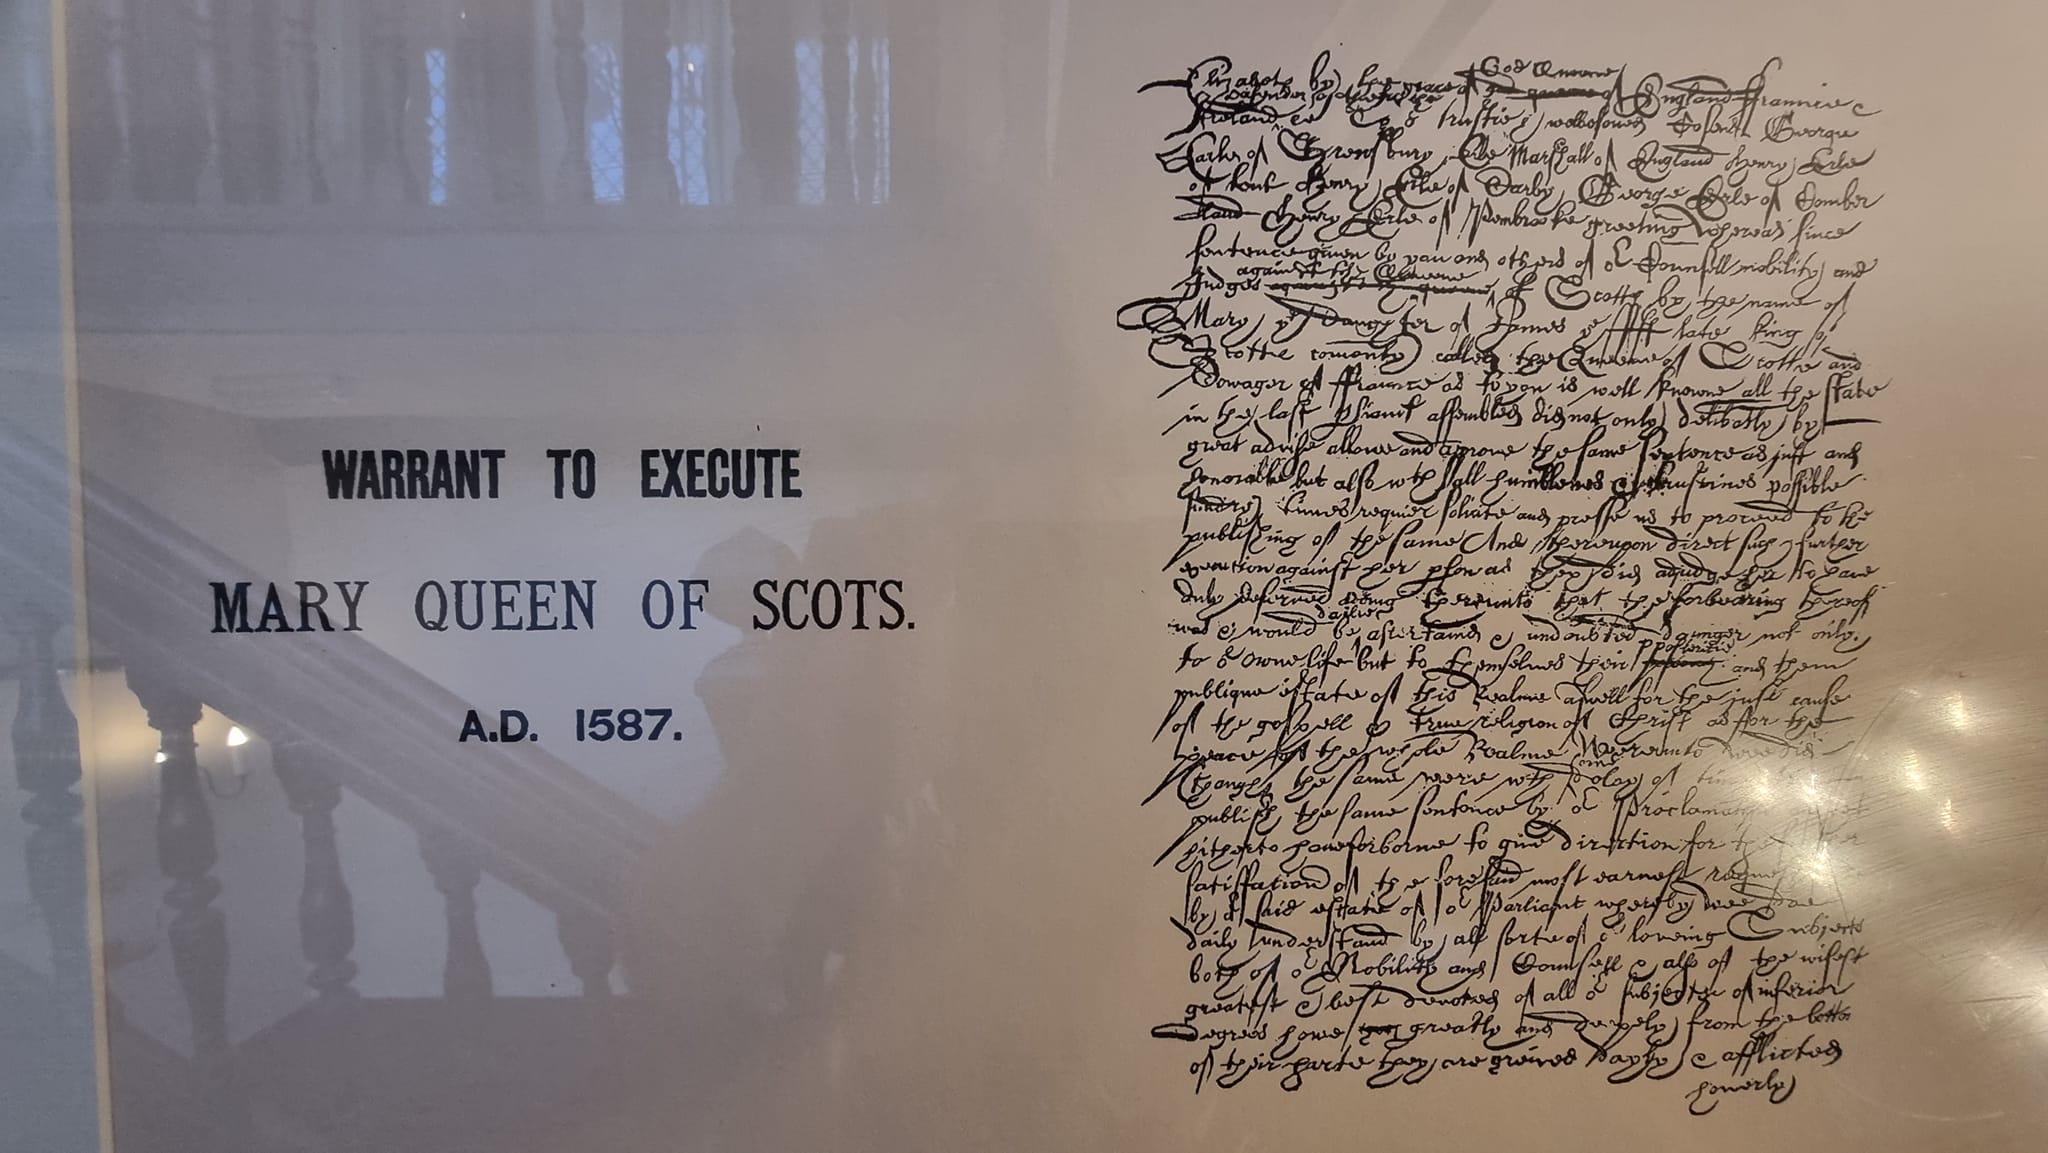 WARRANT TO EXECUTE
MARY QUEEN OF SCOTS.
A.D. 1587.
God Queene
Elizabeth by the grace of of England ffraunce &
defender of the
Ireland &c To trustie & welbeloved Cosens George
Earle of Shrewsbury, Erle Marshall of England Henry, Erle
of kent Henry Erle of Darby, George Erle of Comber
land Henry Erle of Pembrooke greeting whereas since
sentence given by you and others of Counsell nobility and
against the Queene
Judges of Scotts by the name of
Mary, ye Daughter of James ye ffift late king of
Scotte comonly called the Queene of Scotte and
Dowager of ffraunce as to you is well knowne all the state
in the last assembled did not only delibatly by
great advise allowe and approve the same sentence as just and
honorable but also wth all humblenes & possible
sundry times requier soliate and presse us to proceed to the
publishing of the same And thereupon direct such further
execution against her pson as they did adjudge her to have
duly deserved thereunto that the forbearing thereof
dailie
was & would be, & undoubted daunger not only
posteritie
to owne life but to themselves their and them
publique estate of this Realme aswell for the just cause
of the gospell & true religion of Christ as for the
peace of the whole Realme Whereunto wee did
some
the same were wth delay of
publish the same sentence by
hitherto have forborne to give direction for the
satisfaction of the foresaid most earnest
by said estate of Parliant whereby wee
daily understand by all sorte of loveing Subjects
both of Nobility and Counsell & also of the wisest
greatest & best devoted of all subjectes of inferior
degrees howe greatly and deepely from the bottom
of their harte they are greived dayly & afflicted
howerly